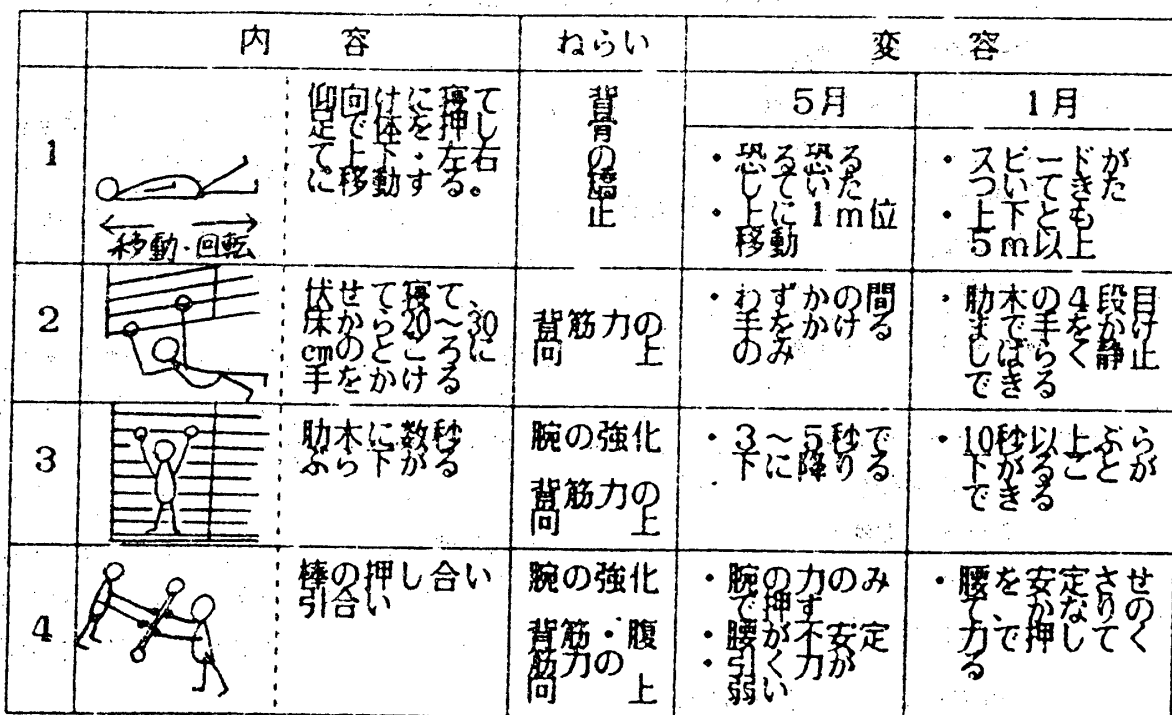 内　容
ねらい
変　容
5月
1月
1
移動・回転
仰向けに寝て
足で体を押し
て上下・左右
に移動する。
背骨の矯正
・恐る恐る
していた
・上に1m位
移動
・スピードが
ついてきた
・上下とも
5m以上
2
伏せて寝て、
床から20～30
cmのところに
手をかける
背筋力の
向　上
・わずかの間
手をかける
のみ
・肋木の4段目
まで手をかけ
しばらく静止
できる
3
肋木に数秒
ぶら下がる
腕の強化
背筋力の
向　上
・3～5秒で
下に降りる
・10秒以上ぶら
下がることが
できる
4
棒の押し合い
引合い
腕の強化
背筋・腹
筋力の
向　上
・腕の力のみ
で押す
・腰が不安定
・引く力が
弱い
・腰を安定させ
て、かなりの
力で押してく
る